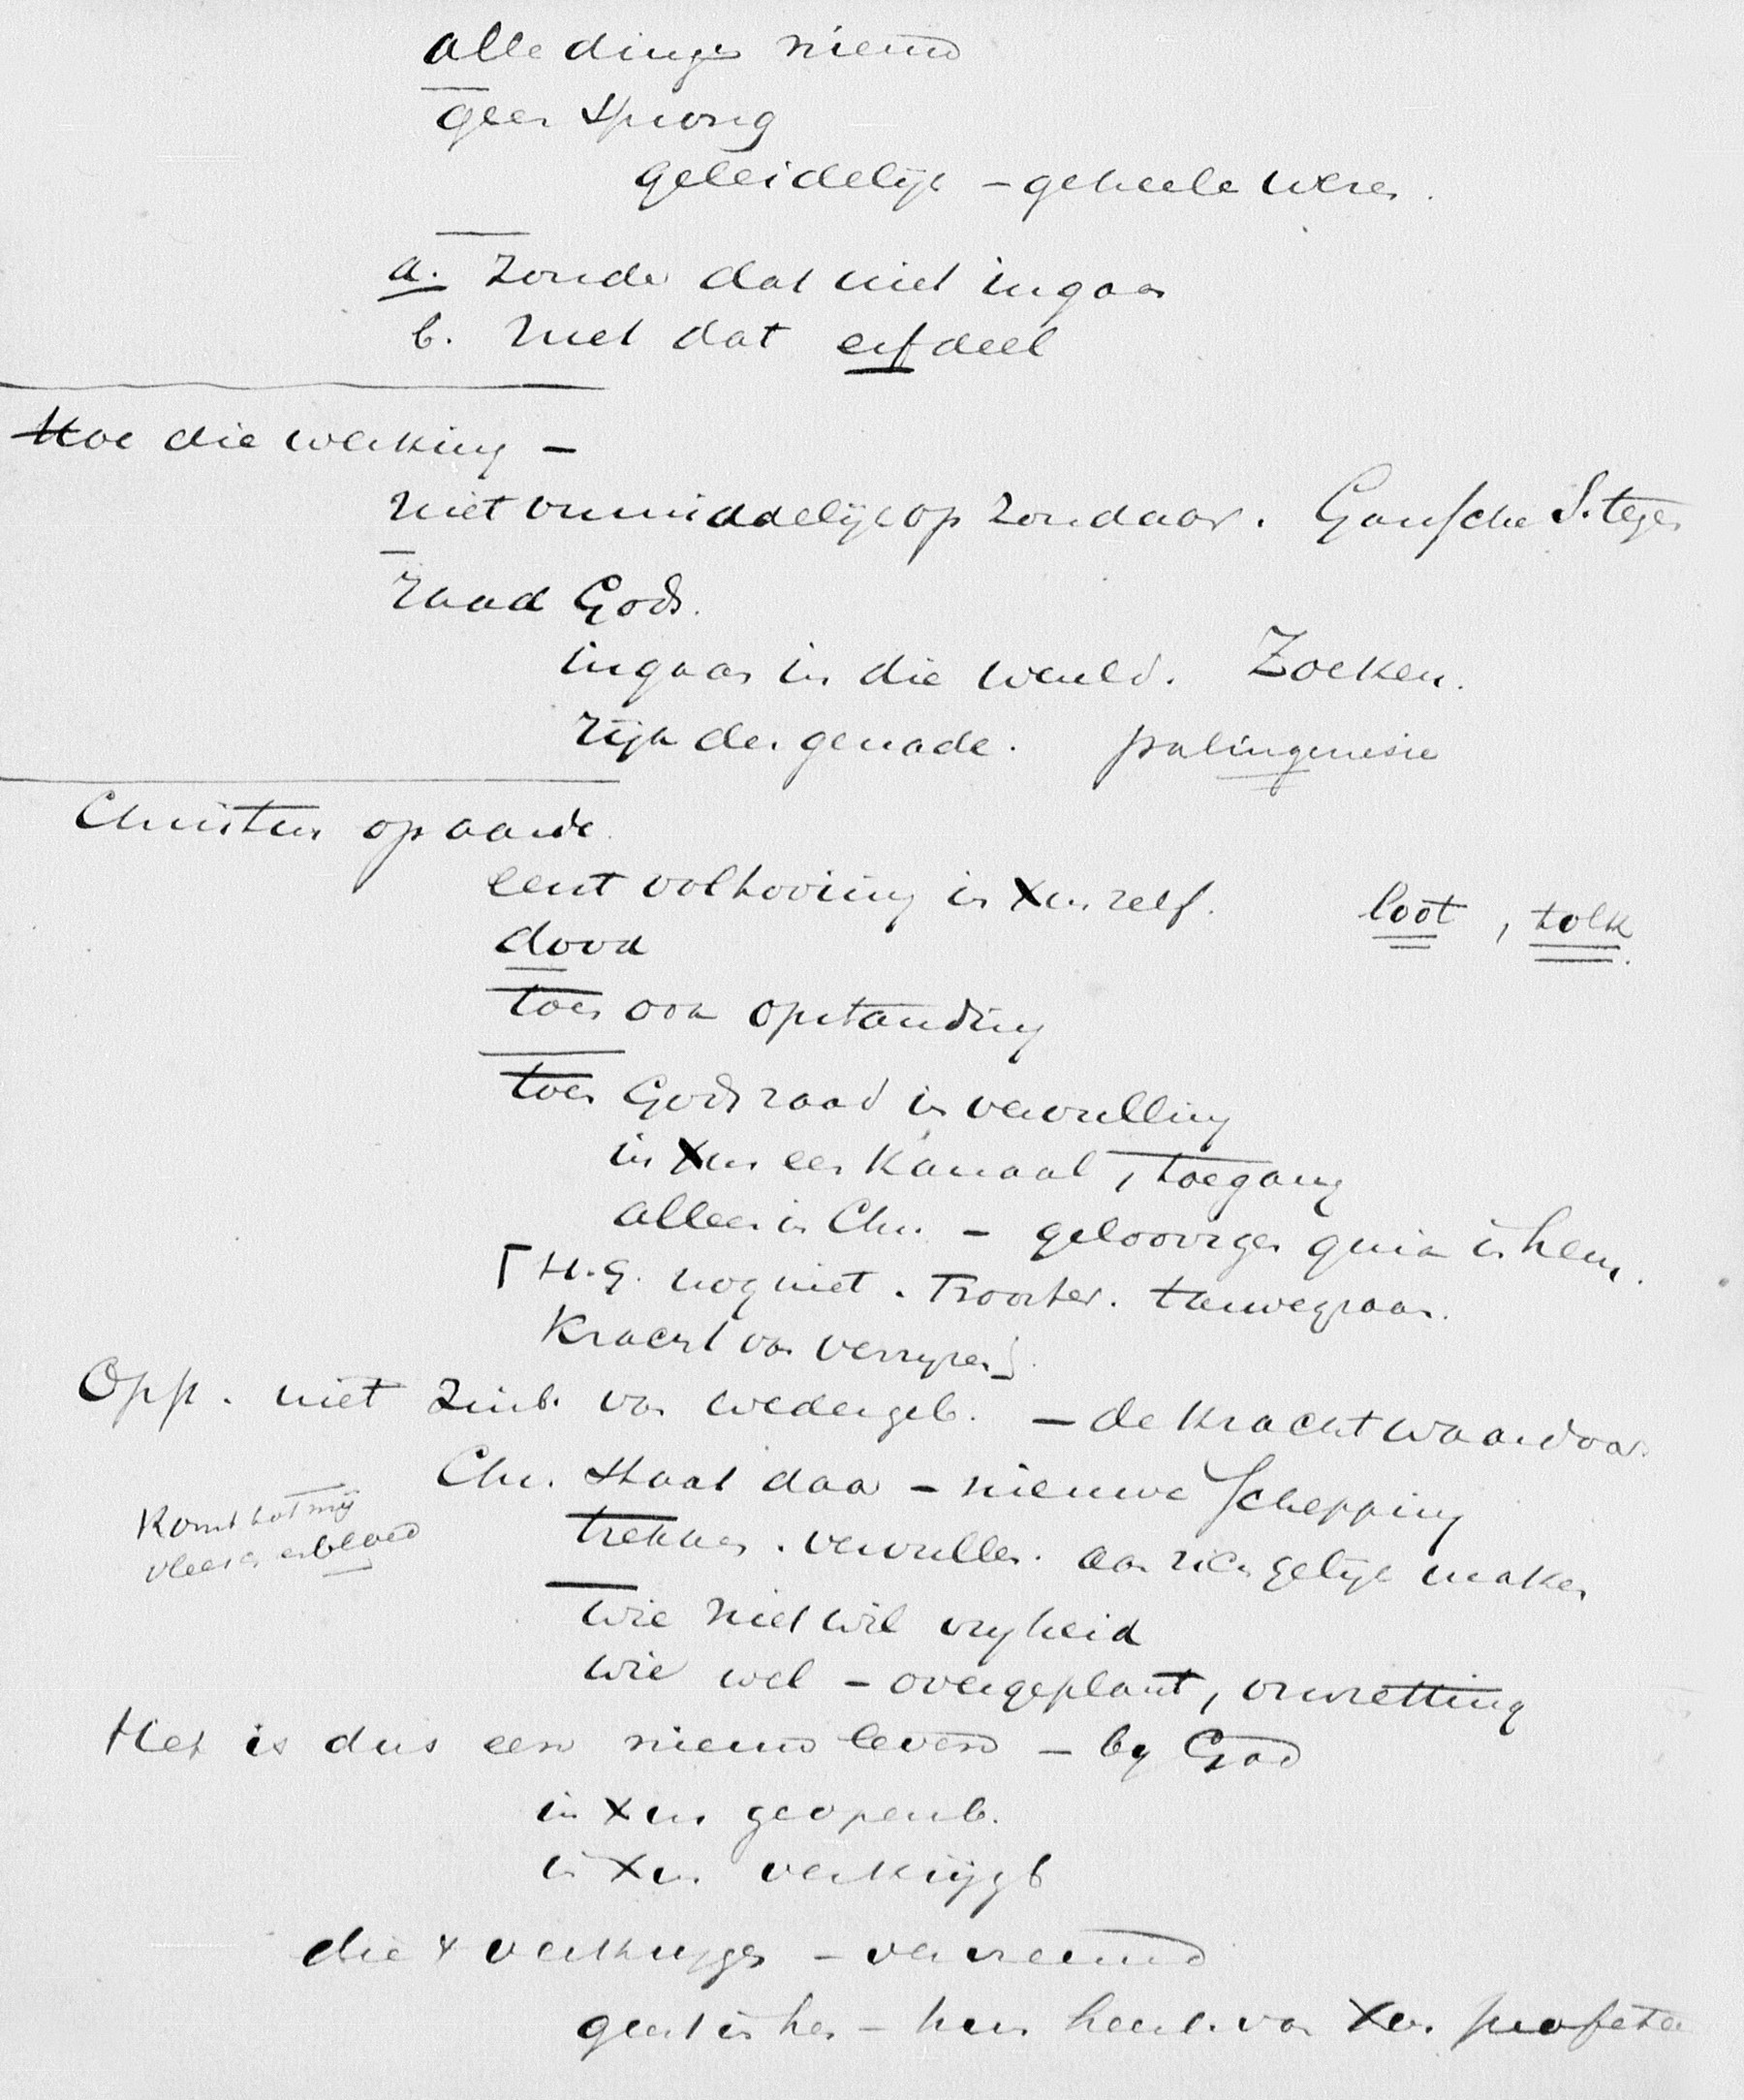 alle dingen nieuw
geen sprong
geleidelijk – geheele wezen.
a. zonde dat niet ingaan
b. met dat erfdeel
Hoe die werking –
niet onmiddelijk op zondaar. Gansche S. tegen
raad Gods.
ingaan in die wereld. Zoeken.
rijk der genade. palingenesie
Christus op aarde.
eerst voltooiing in Xus zelf. loot, tolk.
dood
toen ook opstanding
toen Gods raad in vervulling
in Xus een kanaal, toegang
alleen in Chr. – geloovigen quia in hem.
[H.G. nog niet. Trooster.
Kracht van verrijzen]
Opp. niet zinb. van wedergeb. – de kracht waardoor
Chr. staat daar – nieuwe schepping
Komt tot mij
vleesch en bloed
trekken. vervullen. aan zich gelijk maken
wie niet wil vrijheid
wie wel – overgeplant, omzetting
Het is dus een nieuw leven – by God
in Xus geopenb.
in Xus verkrijgb
die X verkrijgen – vervreemd
geest in hen – hun van Xus profeten